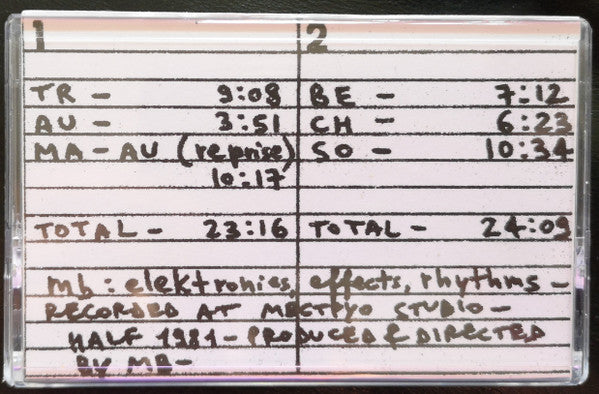 1
TR - 9:08
AU - 3:51
MA-AU (reprise)
10:17
TOTAL - 23:16
2
BE - 7:12
CH - 6:23
SO - 10:34
TOTAL - 24:09
mb: elektronics, effects, rhythms -
RECORDED AT MECTPYO STUDIO -
HALF 1981 - PRODUCED & DIRECTED
BY MB -